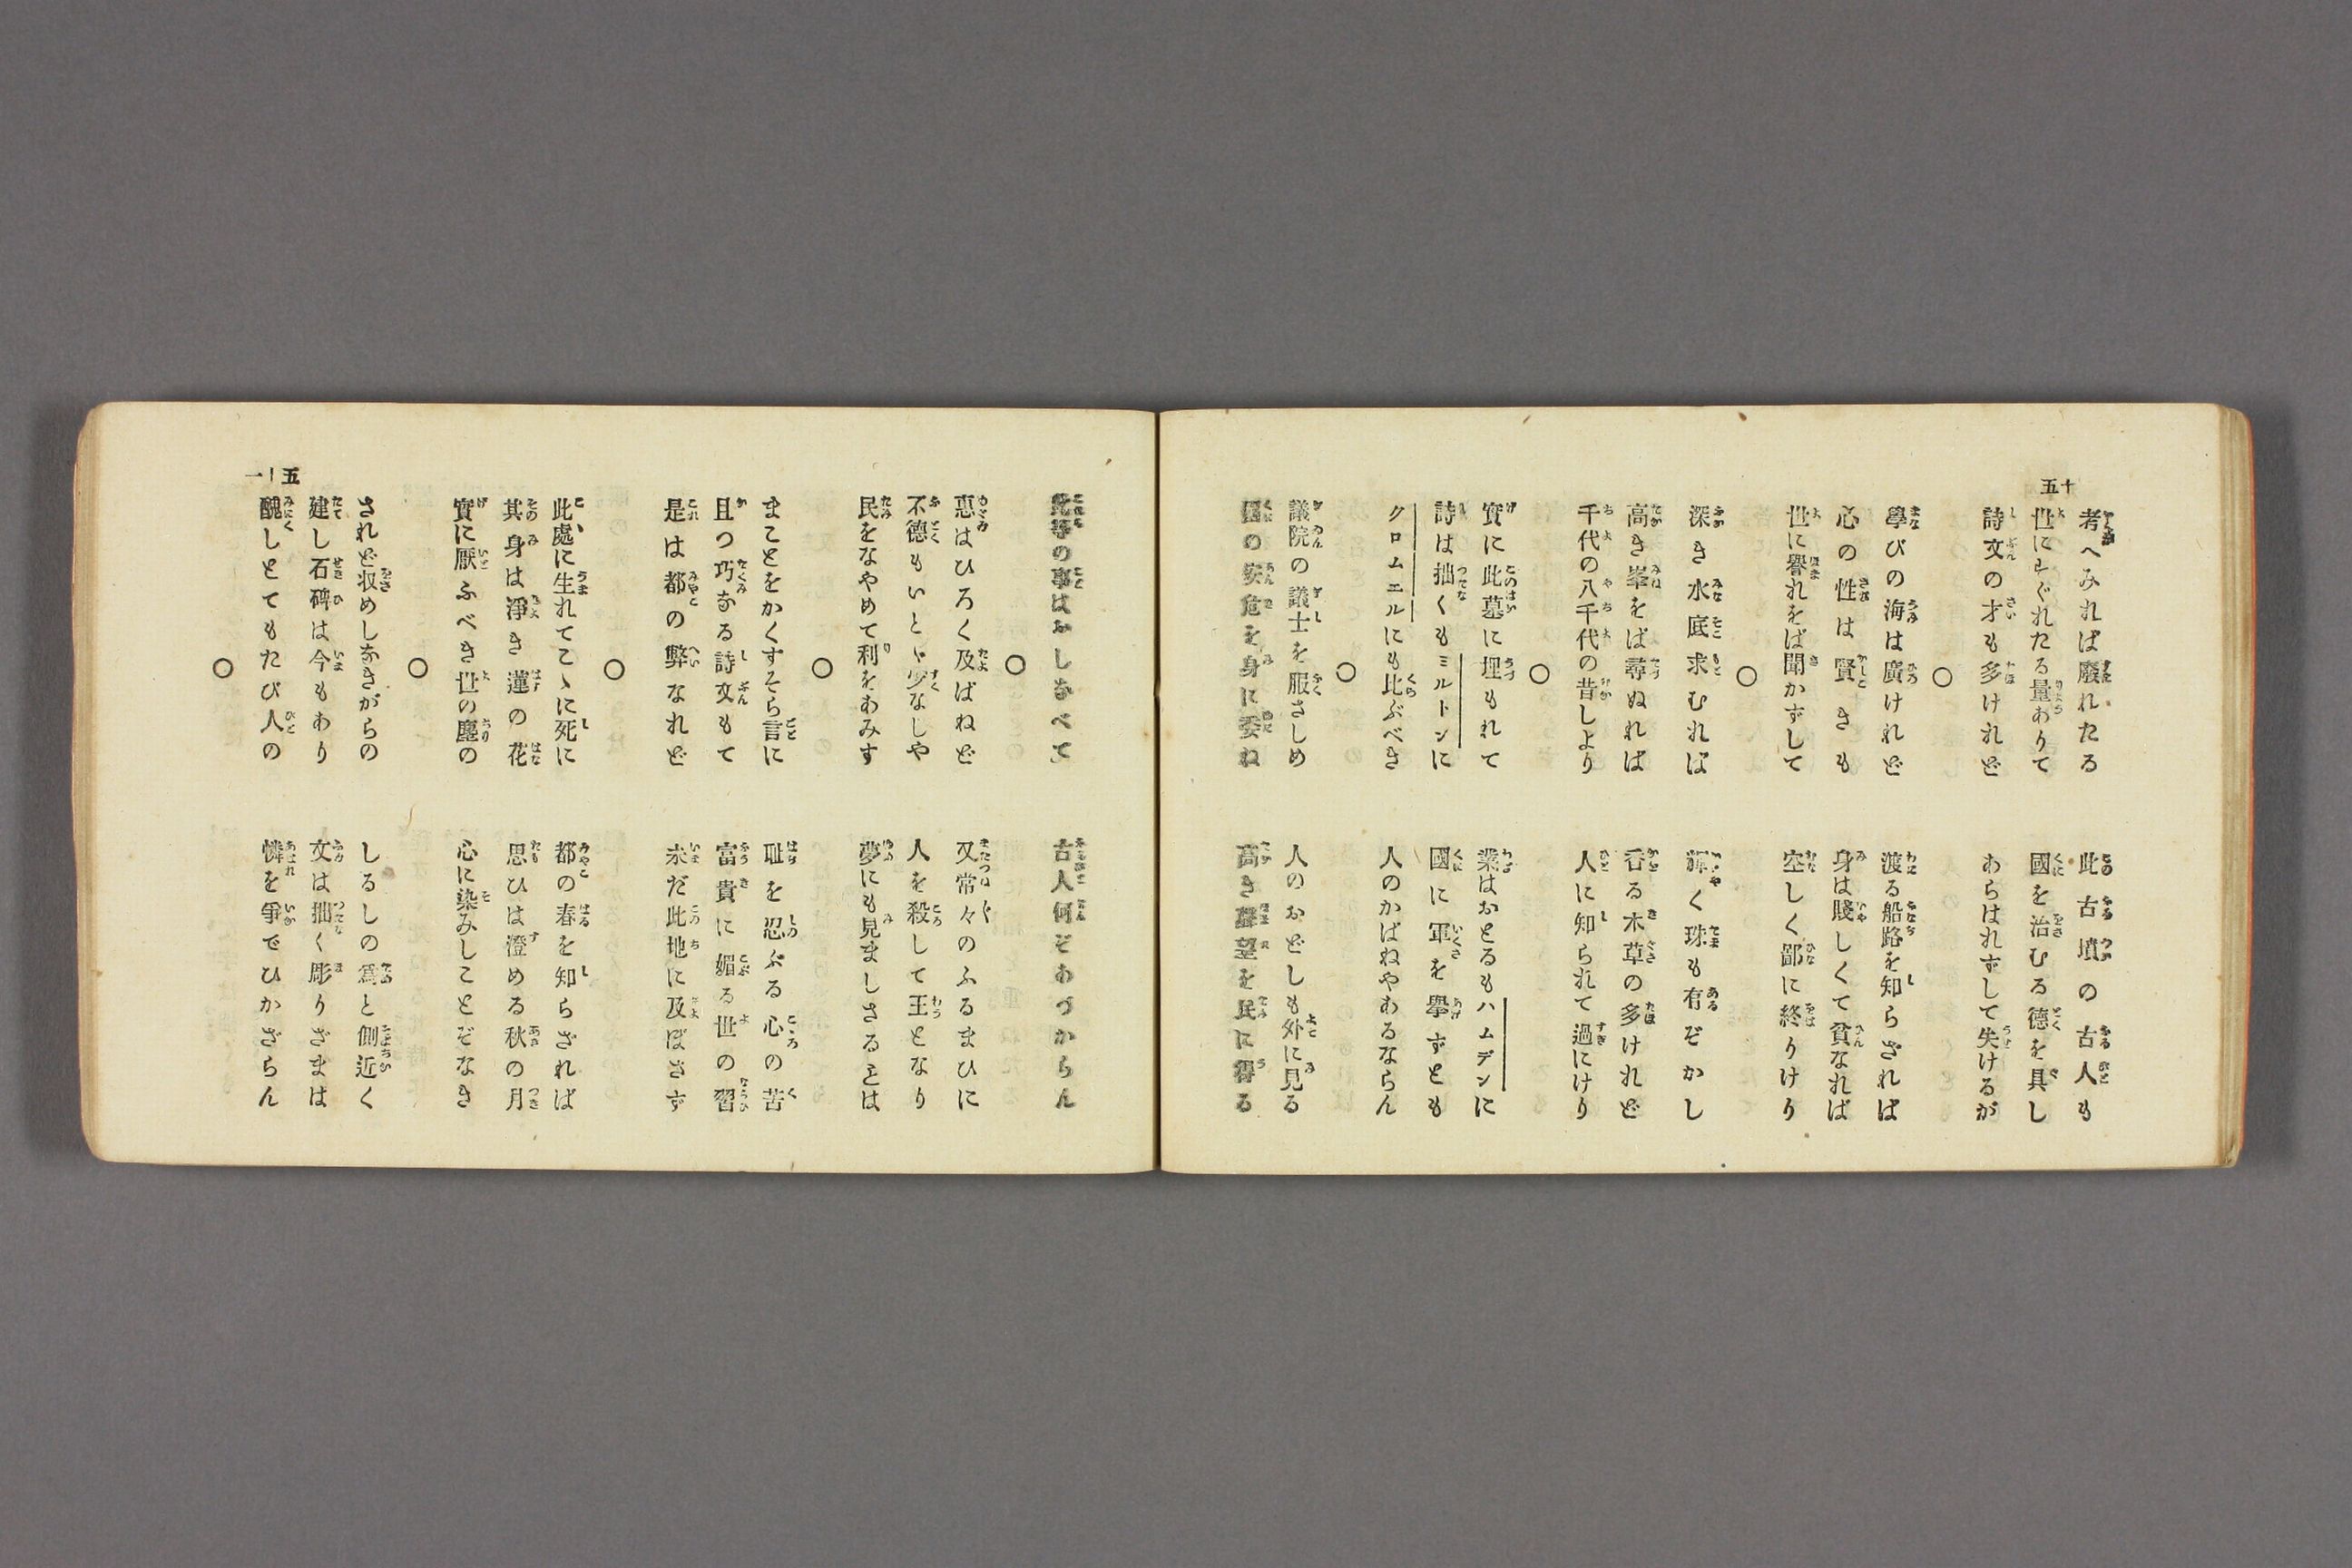 五十
考へみれば廢れたる 此古墳の古人も
世にすぐれたる量ありて 國を治むる德を具し
詩文の才も多けれど あらはれずして失けるが
○
學びの海は廣けれど 渡る船路を知らざれば
心の性は賢きも 身は賤しくて貧なれば
世に譽れをば聞かずして 空しく鄙に終りけり
○
深き水底求むれば 輝く珠も有ぞかし
高き峯をば尋ぬれば 香る木草の多けれど
千代の八千代の昔しより 人に知られて過にけり
○
實に此墓に埋もれて 業はおとるもハムデンに
詩は拙くもミルトンに 國に軍を擧ずとも
クロムエルにも比ぶべき 人のかばねやあるならん
○
議院の議士を服さしめ 人のおどしも外に見る
國の安危を身に委ね 高き譽望を民に得る
此等の事はおしなべて 古人何ぞあづからん
○
惠はひろく及ばねど 又常々のふるまひに
不德もいとゞ少なしや 人を殺して王となり
民をなやめて利をあみす 夢にも見ましさるとは
○
まことをかくすそら言に 耻を忍ぶる心の苦
且つ巧なる詩文もて 富貴に媚る世の習
是は都の弊なれど 未だ此地に及ぼさず
○
此處に生れてこゝに死に 都の春を知らざれば
其身は淨き蓮の花 思ひは澄める秋の月
實に厭ふべき世の塵の 心に染みしことぞなき
○
されど収めしなきがらの しるしの爲と側近く
建し石碑は今もあり 文は拙く彫りざまは
醜しとてもたび人の 憐を爭でひかざらん
○
五十一